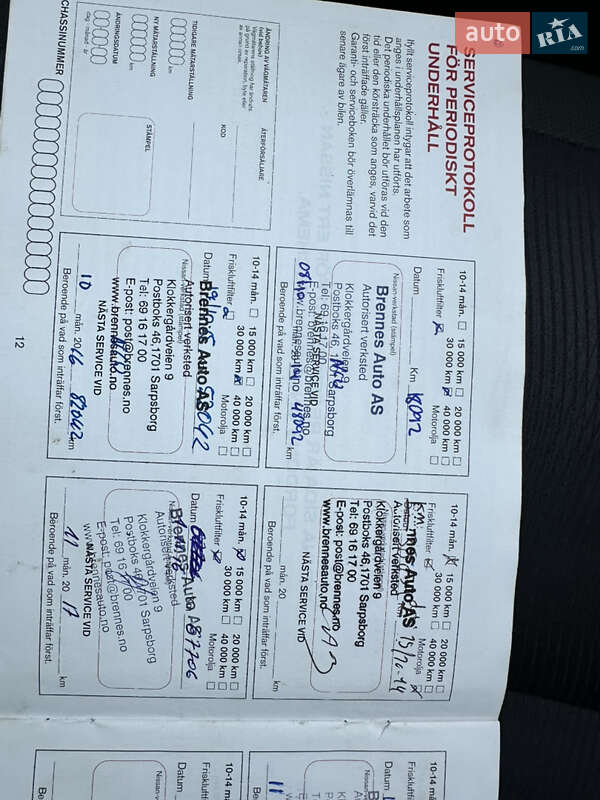 auto RIA .com
SERVICEPROTOKOLL
FÖR PERIODISKT
UNDERHÅLL
Ifyllt serviceprotokoll intygar att det arbete som
anges i underhållsplanen har utförts.
Det periodiska underhållet bör utföras vid den
tid eller den körsträcka som anges, varvid det
först inträffade gäller.
Garanti- och serviceboken bör överlämnas till
senare ägare av bilen.
ÄNDRING AV VÄGMÄTAREN
Vid behov!
TIDIGARE MÄTARSTÄLLNING
km
NY MÄTARSTÄLLNING
km
ÄNDRINGSDATUM
dag månad år
ÅTERFÖRSÄLJARE
KOD
STÄMPEL
CHASSINUMMER
10-14 mån. 15 000 km 20 000 km
Friskluftfilter 30 000 km 40 000 km
Motorolja
Datum Km
Nissan-verkstad (stämpel)
Brennes Auto AS
Autorisert verksted
Klokkergårdveien 9
Postboks 46, 1701 Sarpsborg
Tel: 69 16 17 00
E-post: post@brennes.no
www.brennesauto.no
NÄSTA SERVICE VID
48092 km
Beroende på vad som inträffar först.
10-14 mån. 15 000 km 20 000 km
Friskluftfilter 30 000 km 40 000 km
Motorolja
Km:
Brennes Auto AS
Autorisert verksted
15/10-14
Klokkergårdveien 9
Postboks 46, 1701 Sarpsborg
Tel: 69 16 17 00
E-post: post@brennes.no
www.brennesauto.no
NÄSTA SERVICE VID
mån. 20 km
Beroende på vad som inträffar först.
10-14 mån. 15 000 km 20 000 km
Friskluftfilter 30 000 km 40 000 km
Motorolja
Datum
Brennes Auto AS
Autorisert verksted
Klokkergårdveien 9
Postboks 46, 1701 Sarpsborg
Tel: 69 16 17 00
E-post: post@brennes.no
www.brennesauto.no
NÄSTA SERVICE VID
10 mån. 2016 82042 km
Beroende på vad som inträffar först.
10-14 mån. 15 000 km 20 000 km
Friskluftfilter 30 000 km 40 000 km
Motorolja
Datum 67706
Brennes Auto AS
Autorisert verksted
Klokkergårdveien 9
Postboks 46, 1701 Sarpsborg
Tel: 69 16 17 00
E-post: post@brennes.no
www.brennesauto.no
NÄSTA SERVICE VID
11 mån. 2017 km
Beroende på vad som inträffar först.
12
10-14 mån. 15 000
Friskluftfilter 30 000
Datum
Nissan-verkstad
Brenne
Autoriser
Klokkergå
Postboks
10-14 mån. 15 000
Friskluftfilter 30 000
Datum
Nissan-ver